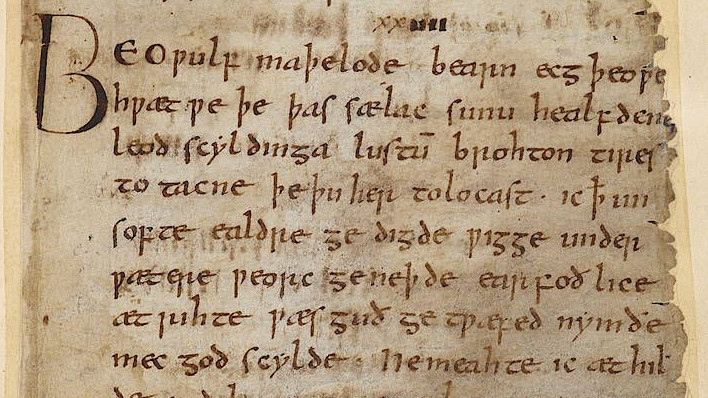 xxiiii
BEOǷULF maþelode bearn ecg þeoƿe
hƿæt ƿe þe þas sælac sunu healfdenes
leod scyldinga lustū brohton tires
to tacne þe þu her tolocast · ic ꝥ un
softe ealdre ge digde ƿigge under
ƿætere ƿeorc geneþde earfoð lice
æt rihte ƿæs guð ge tƿæfed nymðe
mec god scylde · Ne meahte ic æt hil